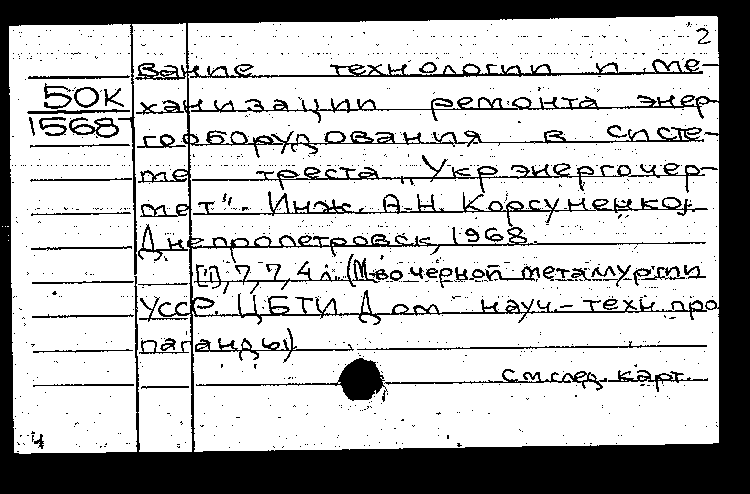 2
вание технологии и ме-
50К
ханизации ремонта энер-
1568
гооборудования в систе-
ме треста „Укрэнергочер-
мет". Инж. А.Н. Корсуненко).
Днепропетровск, 1968.
[1], 7, 7, 4 л. (М-во черной металлургии
УССР. ЦБТИ Дом науч.-техн. про
паганды)
см. след. карт.
4